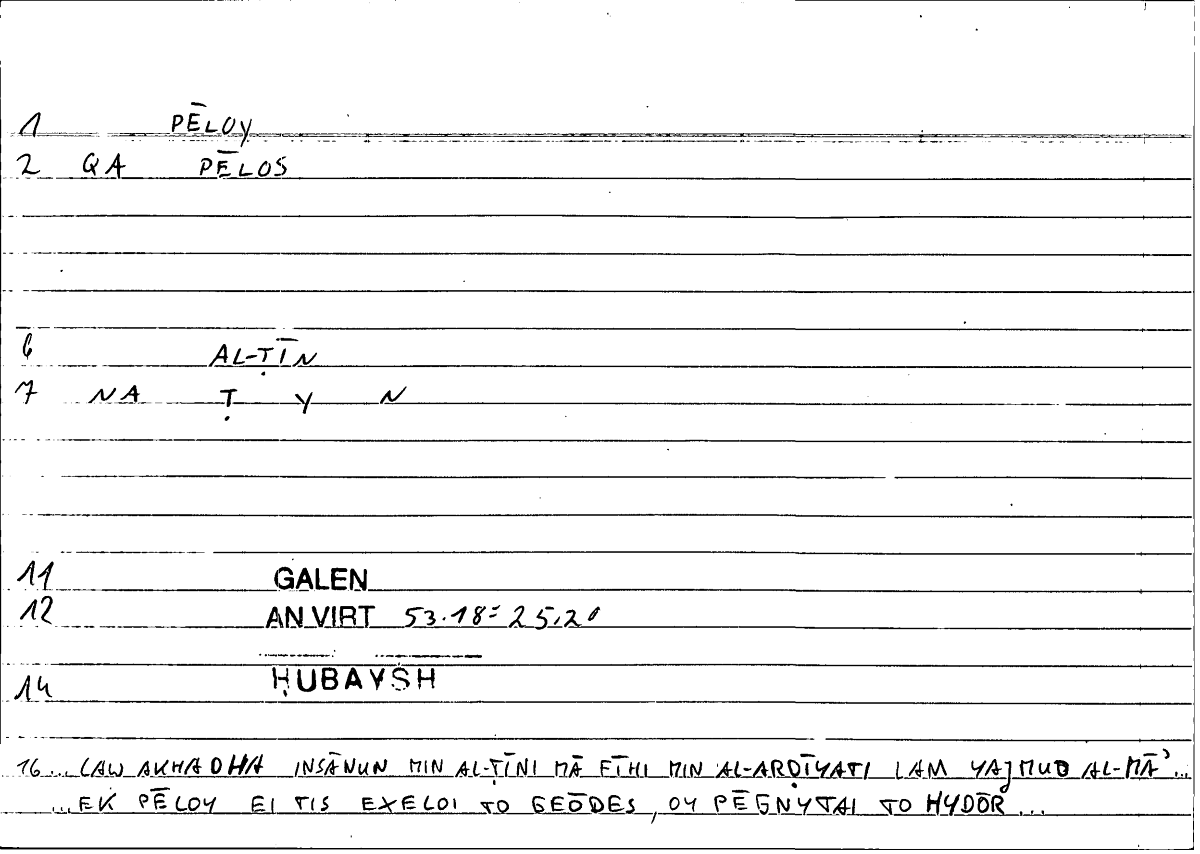 1 PĒLOY
2 QA PĒLOS
6 AL-ṬĪN
7 NA Ṭ Y N
11 GALEN
12 AN VIRT 53.18 = 25,20
ḤUBAYSH
14
16 ... LAW AKHADHA INSĀNUN MIN AL-ṬĪNI MĀ FĪHI MIN AL-ARḌĪYATI LAM YAJMUD AL-MĀʾ ...
... EK PĒLOY EI TIS EXELOI TO GEŌDES, OY PĒGNYTAI TO HYDŌR ...